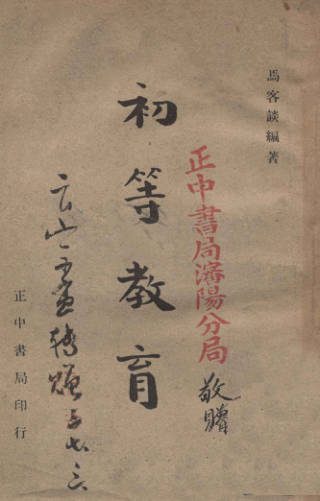 馬客談編著
正中書局瀋陽分局
敬贈
初等教育
云山
轉贈
正中書局印行